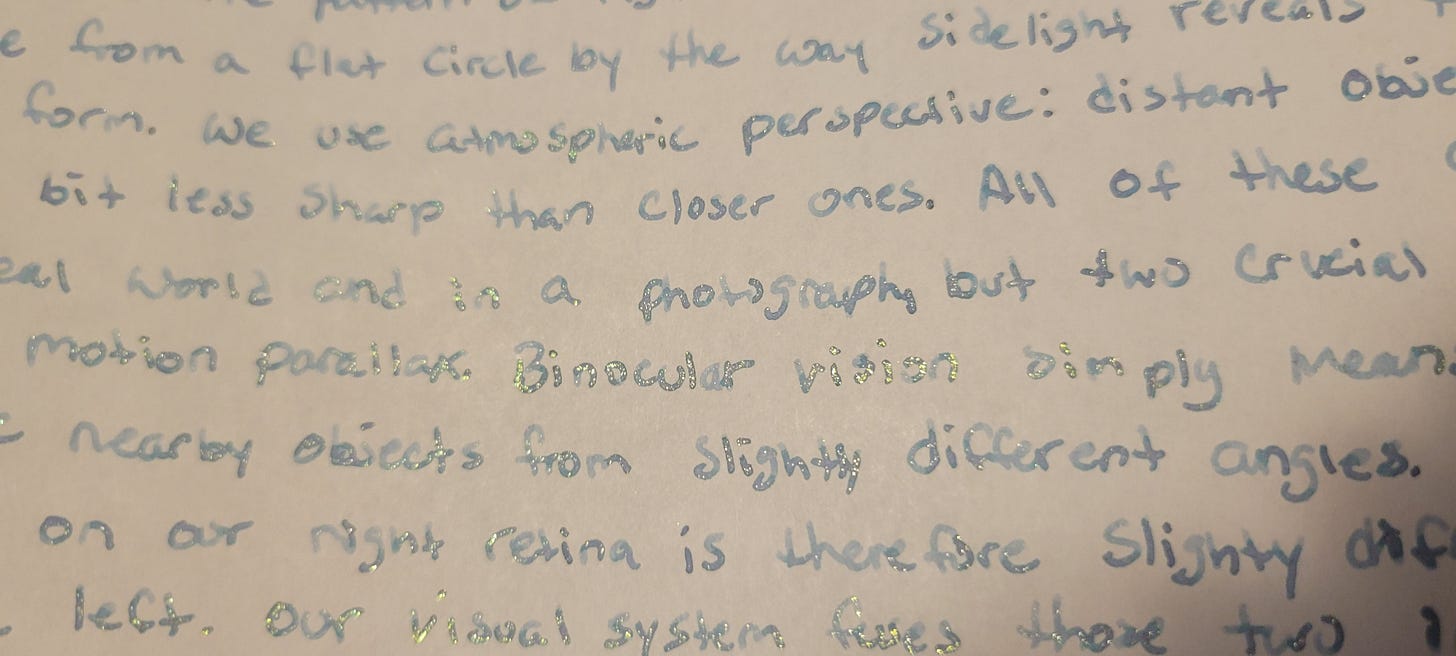 pattern of
e from a flat circle by the way sidelight reveals
form. we use atmospheric perspective: distant obje
bit less sharp than closer ones. All of these
eal world and in a photograph, but two crucial
motion parallax. Binocular vision simply mean
nearby objects from slighty different angles.
on our right retina is therefore slighty diff
left. our visual system fuses those two